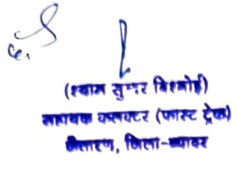 (श्याम सुन्दर बिश्नोई)
सहायक कलक्टर (फास्ट ट्रेक)
जैतारण, जिला-ब्यावर